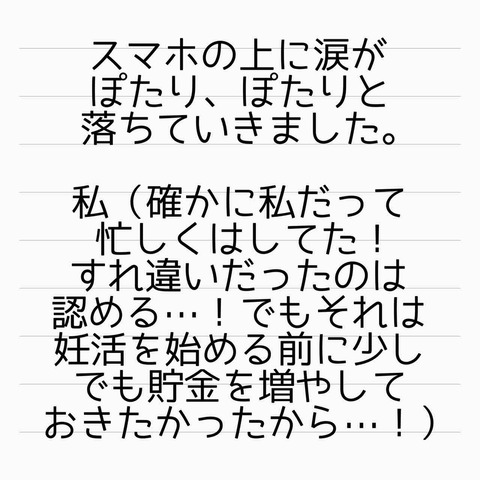 スマホの上に涙が
ぽたり、ぽたりと
落ちていきました。
私（確かに私だって
忙しくはしてた！
すれ違いだったのは
認める…！でもそれは
妊活を始める前に少し
でも貯金を増やして
おきたかったから…！）